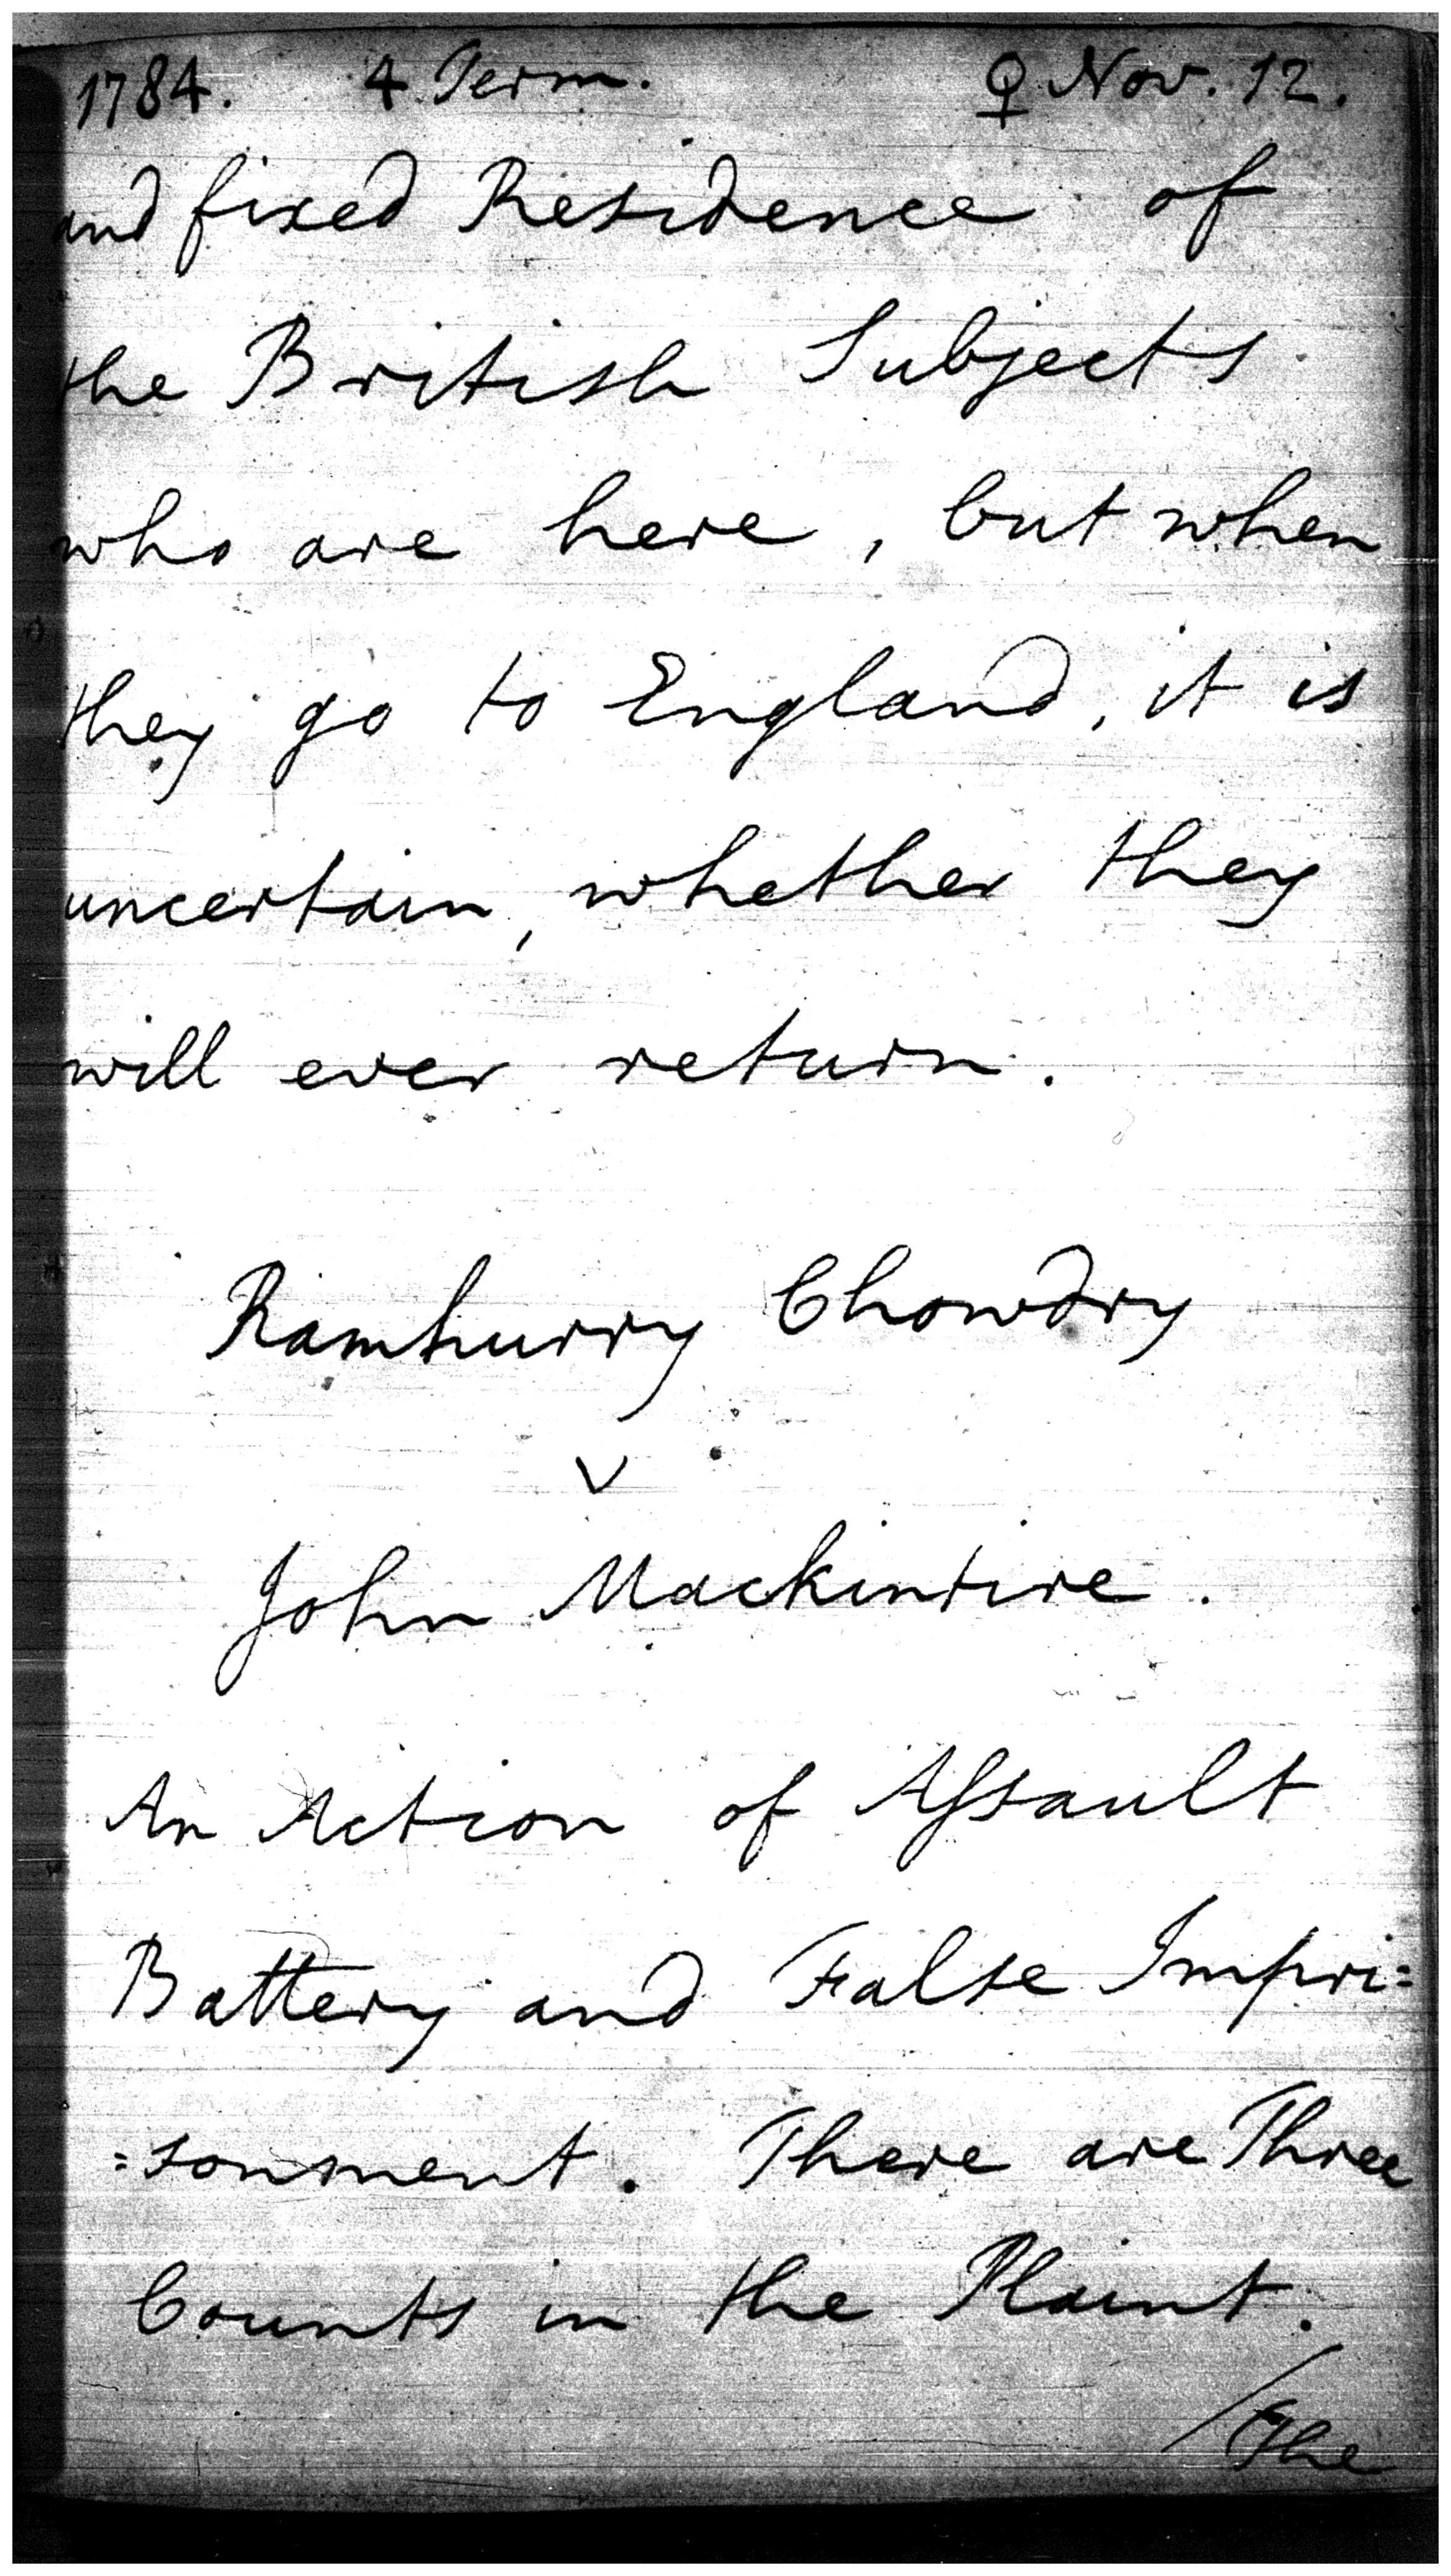 1784. 4 Term. ♀ Nov. 12.
and fixed Residence of
the British Subjects
who are here, but when
they go to England, it is
uncertain, whether they
will ever return.
Ramhurry Chowdry
v
John Mackintire.
An Action of Aſsault
Battery and False Impri=
=sonment. There are Three
Counts in the Plaint.
/The